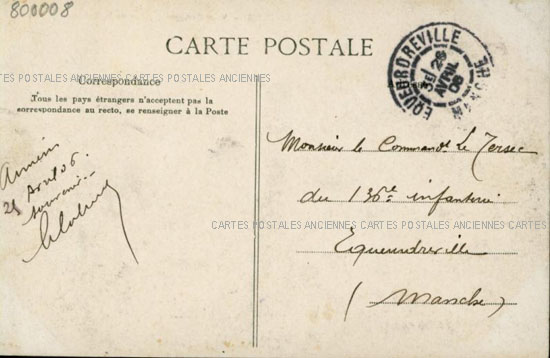 800008
CARTE POSTALE
EQUEURDREVILLE
3E 26
AVRIL
06
MANCHE
CARTES POSTALES ANCIENNES CARTES POSTALES ANCIENNES
Correspondance
Tous les pays étrangers n'acceptent pas la
correspondance au recto, se renseigner à la Poste
Amiens
25 Avril 06.
souvenir
Monsieur le Commandt Le Tersec
du 136e infanterie
CARTES POSTALES ANCIENNES CARTES POSTALES ANCIENNES
Equeurdreville
(Manche)